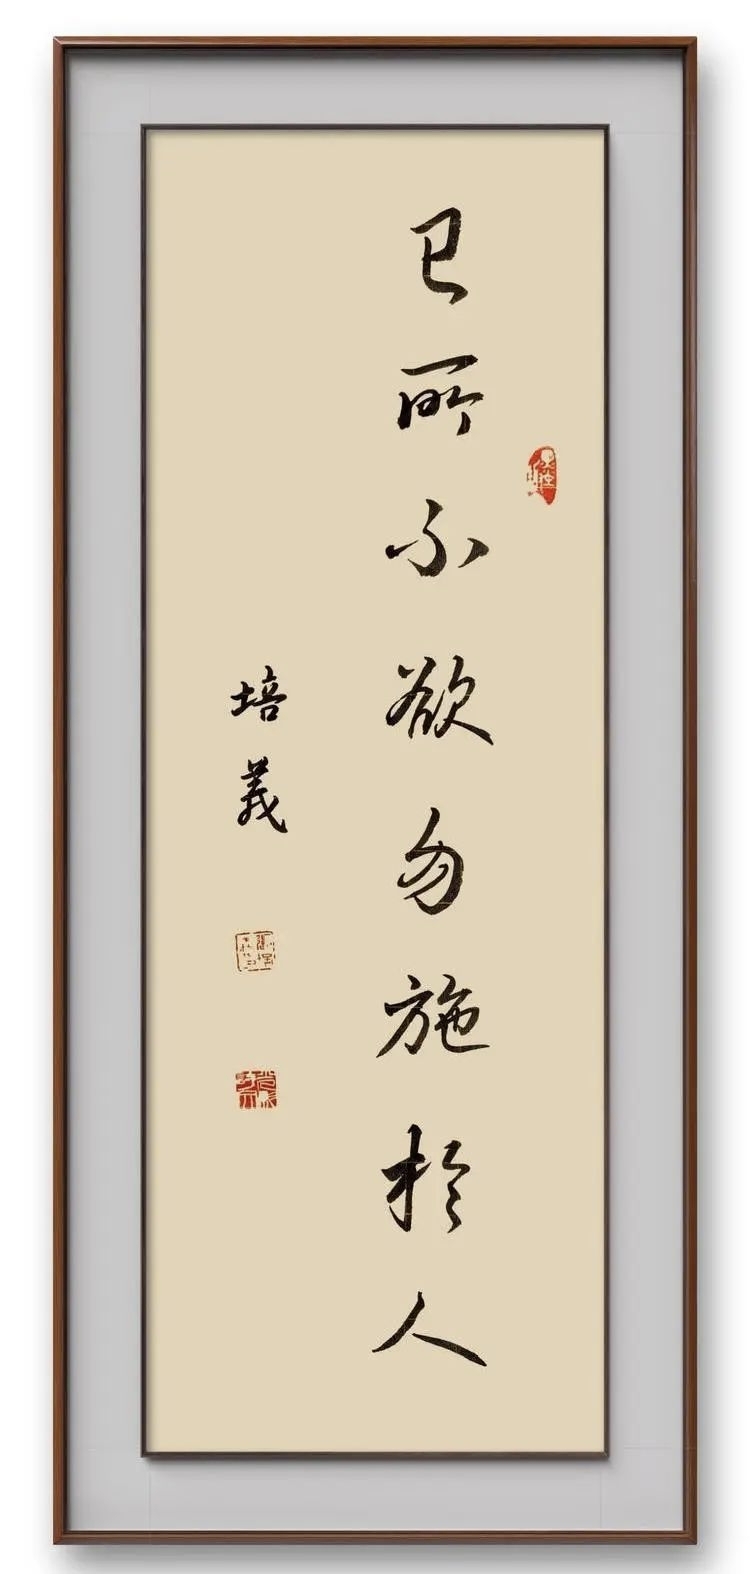 己所不欲勿施於人
培義